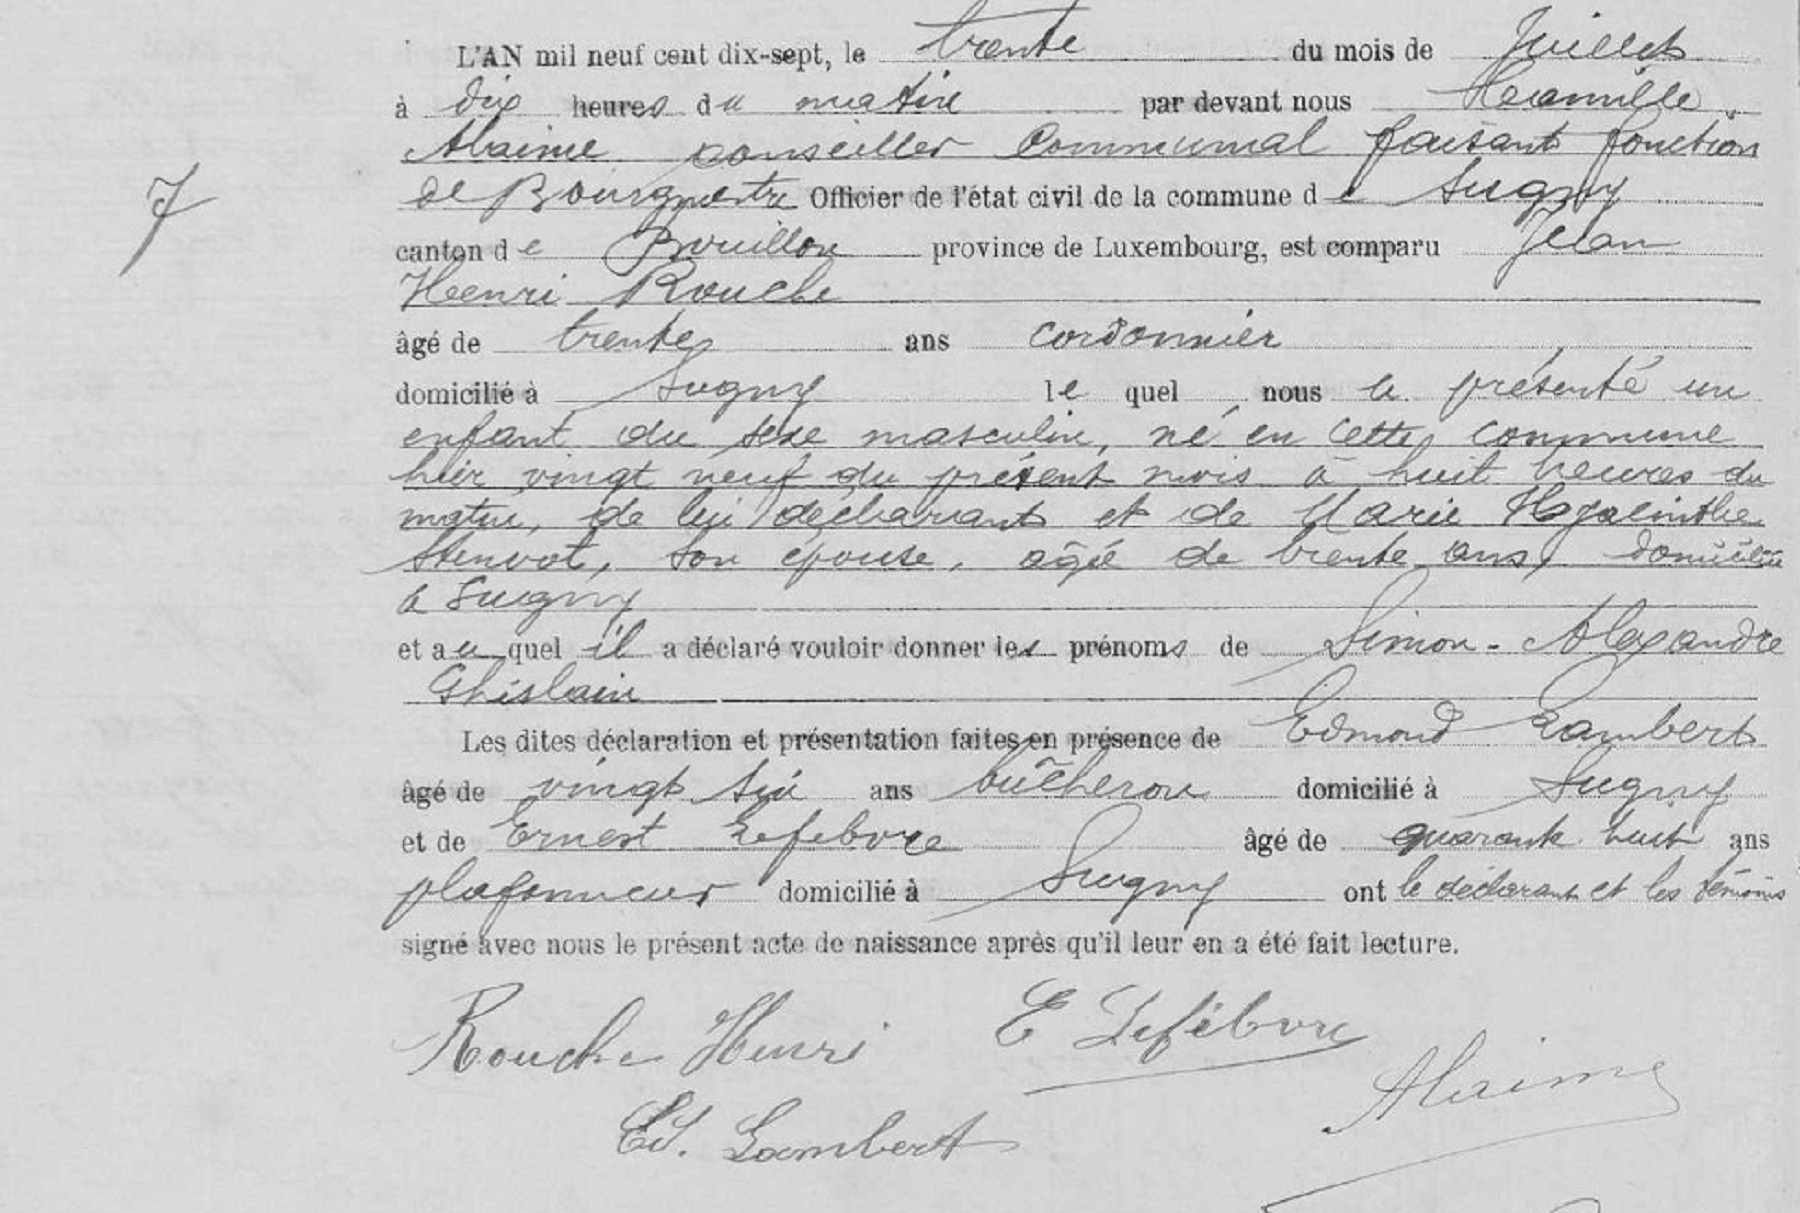 L'AN mil neuf cent dix-sept, le trente du mois de Juillet
à dix heures du matin par devant nous
Alaime conseiller Communal faisant fonction
7
de Bourgmestre Officier de l'état civil de la commune de Sugny
canton de Bouillon province de Luxembourg, est comparu Jean
Henri Rouche
âgé de trente ans cordonnier
domicilié à Sugny lequel nous a présenté un
enfant du sexe masculin, né en cette commune
hier vingt neuf du présent mois à huit heures du
matin, de lui déclarant et de Marie Hyacinthe
son épouse, âgée de trente ans, domiciliée
à Sugny
et auquel il a déclaré vouloir donner les prénoms de Simon-Alexandre
Ghislain
Les dites déclaration et présentation faites en présence de Edmond Lambert
âgé de vingt six ans bûcheron domicilié à Sugny
et de Ernest Lefebvre âgé de quarante huit ans
plafonneur domicilié à Sugny ont le déclarant et les témoins
signé avec nous le présent acte de naissance après qu'il leur en a été fait lecture.
Rouche Henri E Lefébvre
Alaime
Ed. Lambert